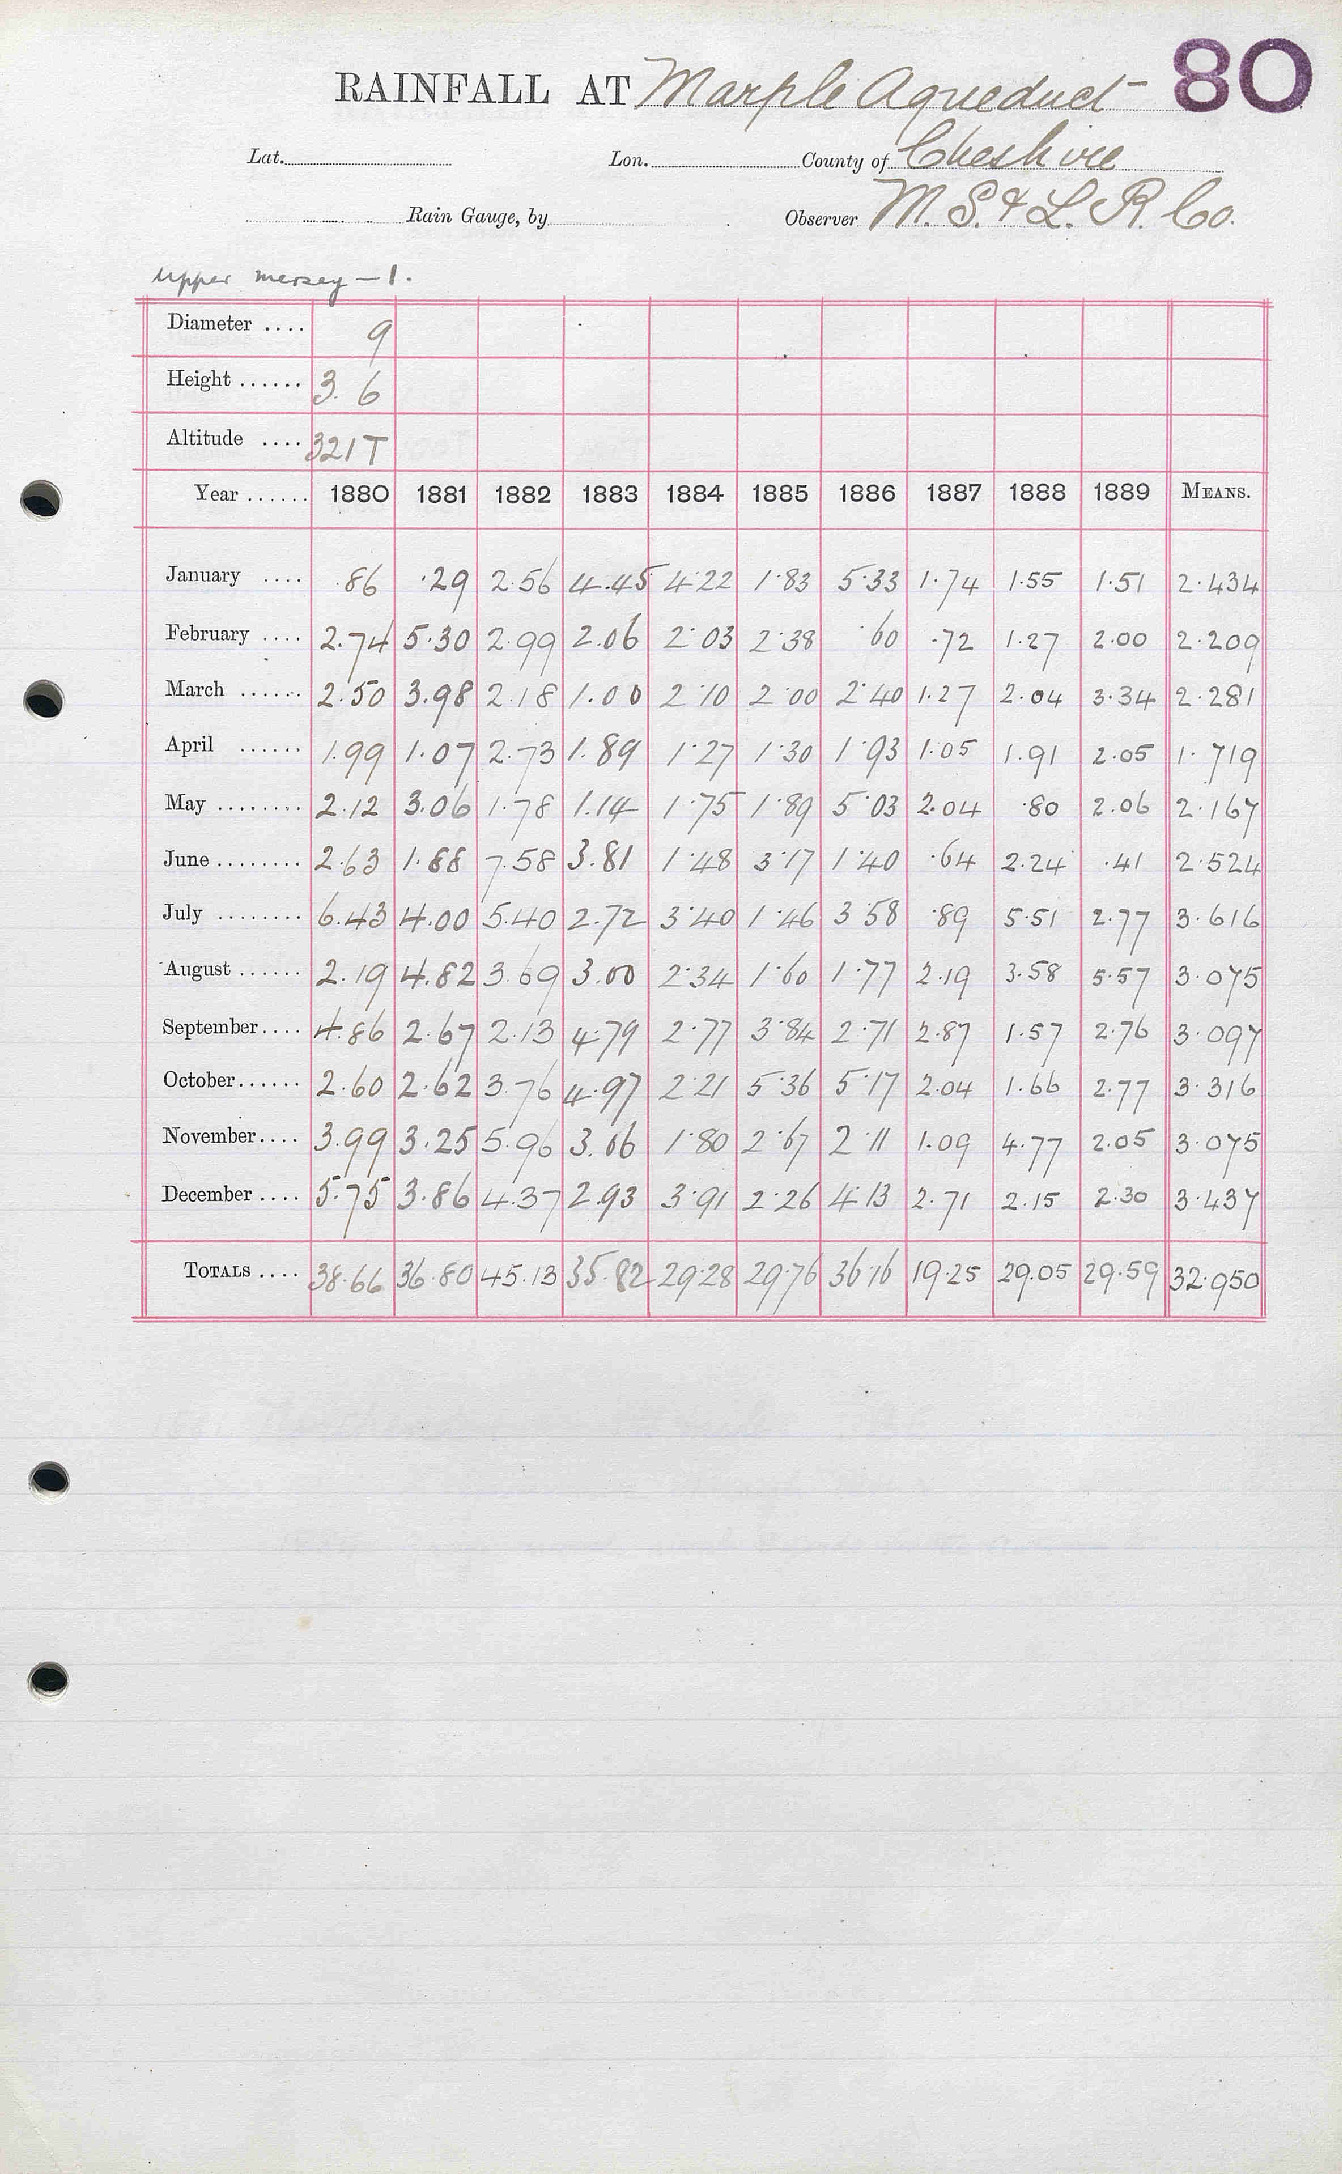 80
RAINFALL AT Marple Aqueduct
Lat. Lon. County of Cheshire
Rain Gauge, by Observer M. S. & L. R. Co.
Upper Mersey — 1.
Diameter .... 9
Height ...... 3. 6
Altitude .... 321T
Year ...... 1880 1881 1882 1883 1884 1885 1886 1887 1888 1889 MEANS.
January .... .86 .29 2.56 4.45 4.22 1.83 5.33 1.74 1.55 1.51 2.434
February .... 2.74 5.30 2.99 2.06 2.03 2.38 .60 .72 1.27 2.00 2.209
March ...... 2.50 3.98 2.18 1.00 2.10 2.00 2.40 1.27 2.04 3.34 2.281
April ...... 1.99 1.07 2.73 1.89 1.27 1.30 1.93 1.05 1.91 2.05 1.719
May ........ 2.12 3.06 1.78 1.14 1.75 1.89 5.03 2.04 .80 2.06 2.167
June ........ 2.63 1.88 7.58 3.81 1.48 3.17 1.40 .64 2.24 .41 2.524
July ........ 6.43 4.00 5.40 2.72 3.40 1.46 3.58 .89 5.51 2.77 3.616
August ...... 2.19 4.82 3.69 3.00 2.34 1.60 1.77 2.19 3.58 5.57 3.075
September.... 4.86 2.67 2.13 4.79 2.77 3.84 2.71 2.87 1.57 2.76 3.097
October...... 2.60 2.62 3.76 4.97 2.21 5.36 5.17 2.04 1.66 2.77 3.316
November.... 3.99 3.25 5.96 3.06 1.80 2.67 2.11 1.09 4.77 2.05 3.075
December .... 5.75 3.86 4.37 2.93 3.91 2.26 4.13 2.71 2.15 2.30 3.437
TOTALS .... 38.66 36.80 45.13 35.82 29.28 29.76 36.16 19.25 29.05 29.59 32.950